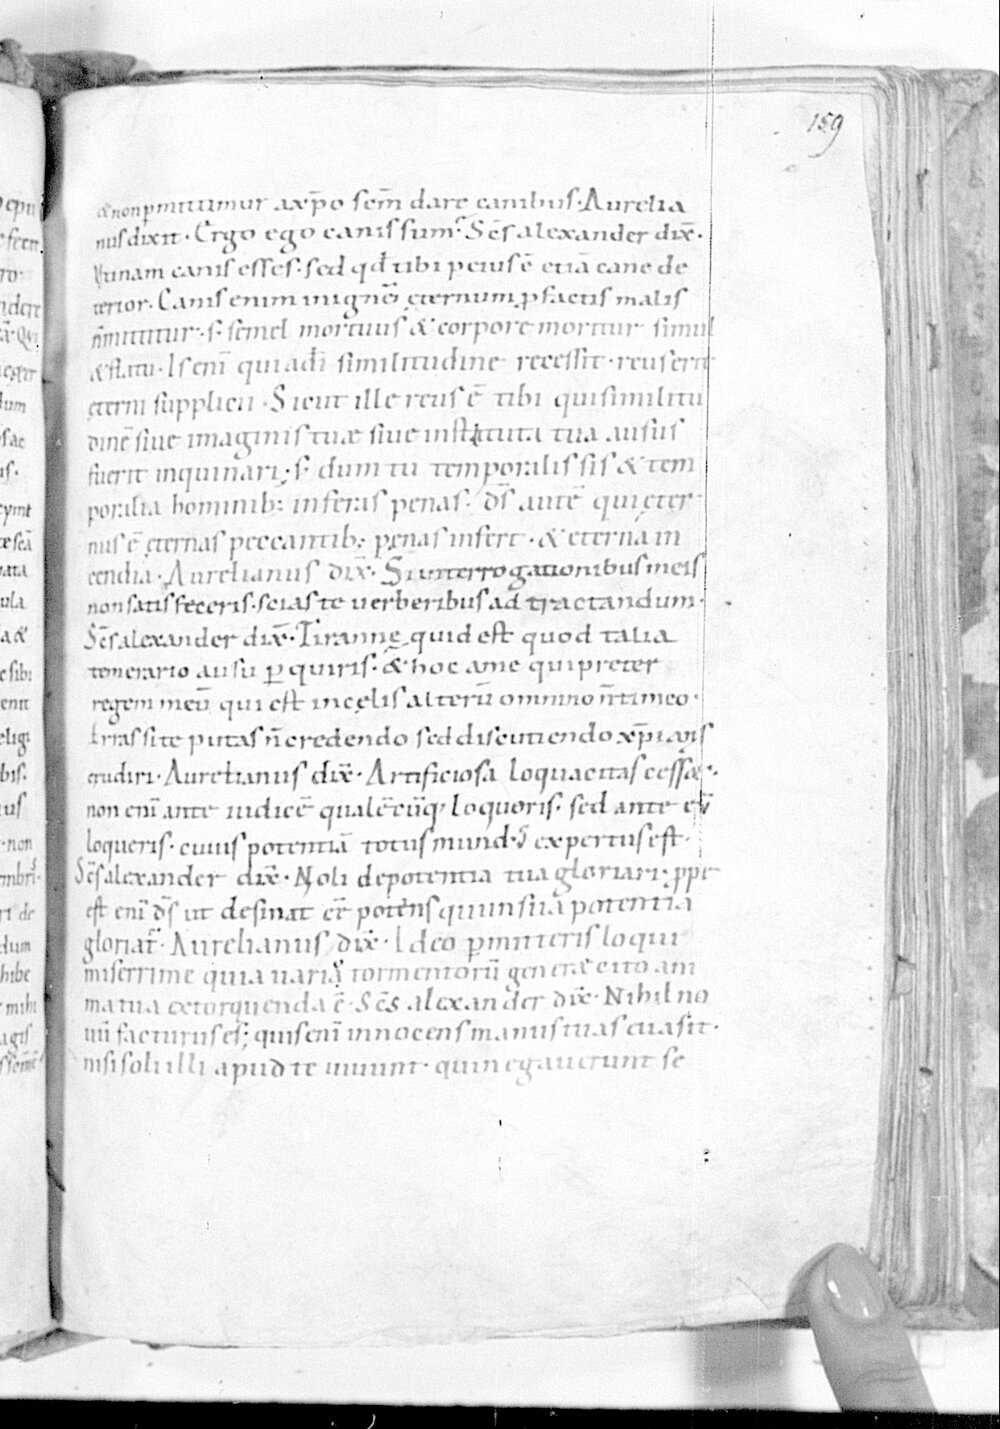 159
& non pmittimur a xp̄o sc̄m dare canibus· Aurelia
nus dixit· Ergo ego canis sum? Sc̄s alexander dix̄·
Vtinam canis esses· sed qđ tibi peius ē etiā cane de
terior· Canis enim in ignē ęternum p factis malis
n̄ mittitur· s; semel mortuus & corpore moritur simul
& flatu· Is eni qui a dī similitudine recessit· reus erit
ęterni supplicii· Sicut ille reus ē tibi qui similitu
dinē siue imaginis tuæ siue instituta tua ausus
fuerit inquinari; s; dum tu temporalis sis & tem
poralia hominib; inferas penas· d̄s autē qui ęter
nus ē ęternas peccantib; pęnas infert· & eterna in
cendia· Aurelianus dix̄· Si interrogationibus meis
non satis feceris· scias te uerberibus ad tractandum·
Sc̄s alexander dix̄· Tiranne quid est quod talia
temerario ausu p quiris· & hoc a me qui preter
regem meū qui est in cęlis alterū omnino n̄ timeo·
Erras si te putas n̄ credendo sed discutiendo xp̄ianis
erudiri· Aurelianus dix̄· Artificiosa loquacitas cesset·
non eni ante iudicē qualēcūq; loquoris· sed ante eū
loqueris· cuius potentiā totus mund; expertus est·
Sc̄s alexander dix̄· Noli de potentia tua gloriari· ppe
est eni d̄s ut desinat eē potens qui in sua potentia
gloriat̄· Aurelianus dix̄· Ideo pmitteris loqui
miserrime quia uaria tormentorū genere cito ani
ma tua extorquenda ē· Sc̄s alexander dix̄· Nihil no
uū facturus es; quis eni innocens manus tuas euasit·
nisi soli illi apud te uiuunt· qui negauerunt se